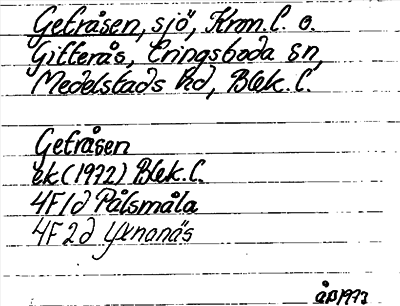 Getråsen, sjö, Kron. l. o.
Gitterås, Eringsboda sn,
Medelstads hd, Blek. l.
Getråsen
ek (1972) Blek. l.
4F 1d Pålsmåla
4F 2d Yxnanäs
åp 1977